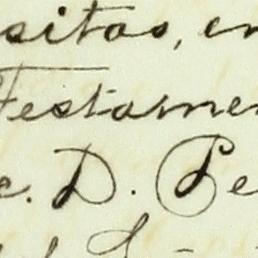 sitas, en
Testamen
e. D. Pe